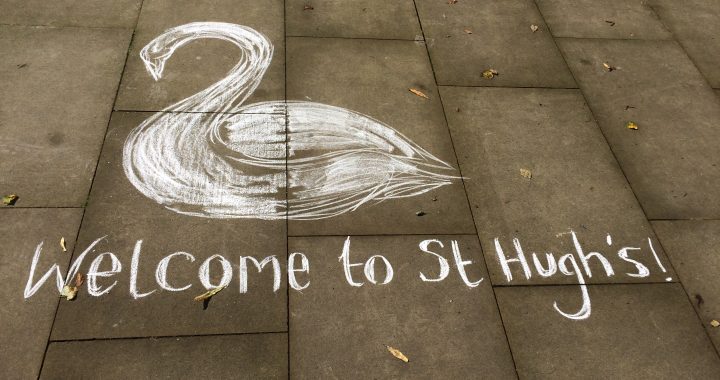 Welcome to St Hugh's!